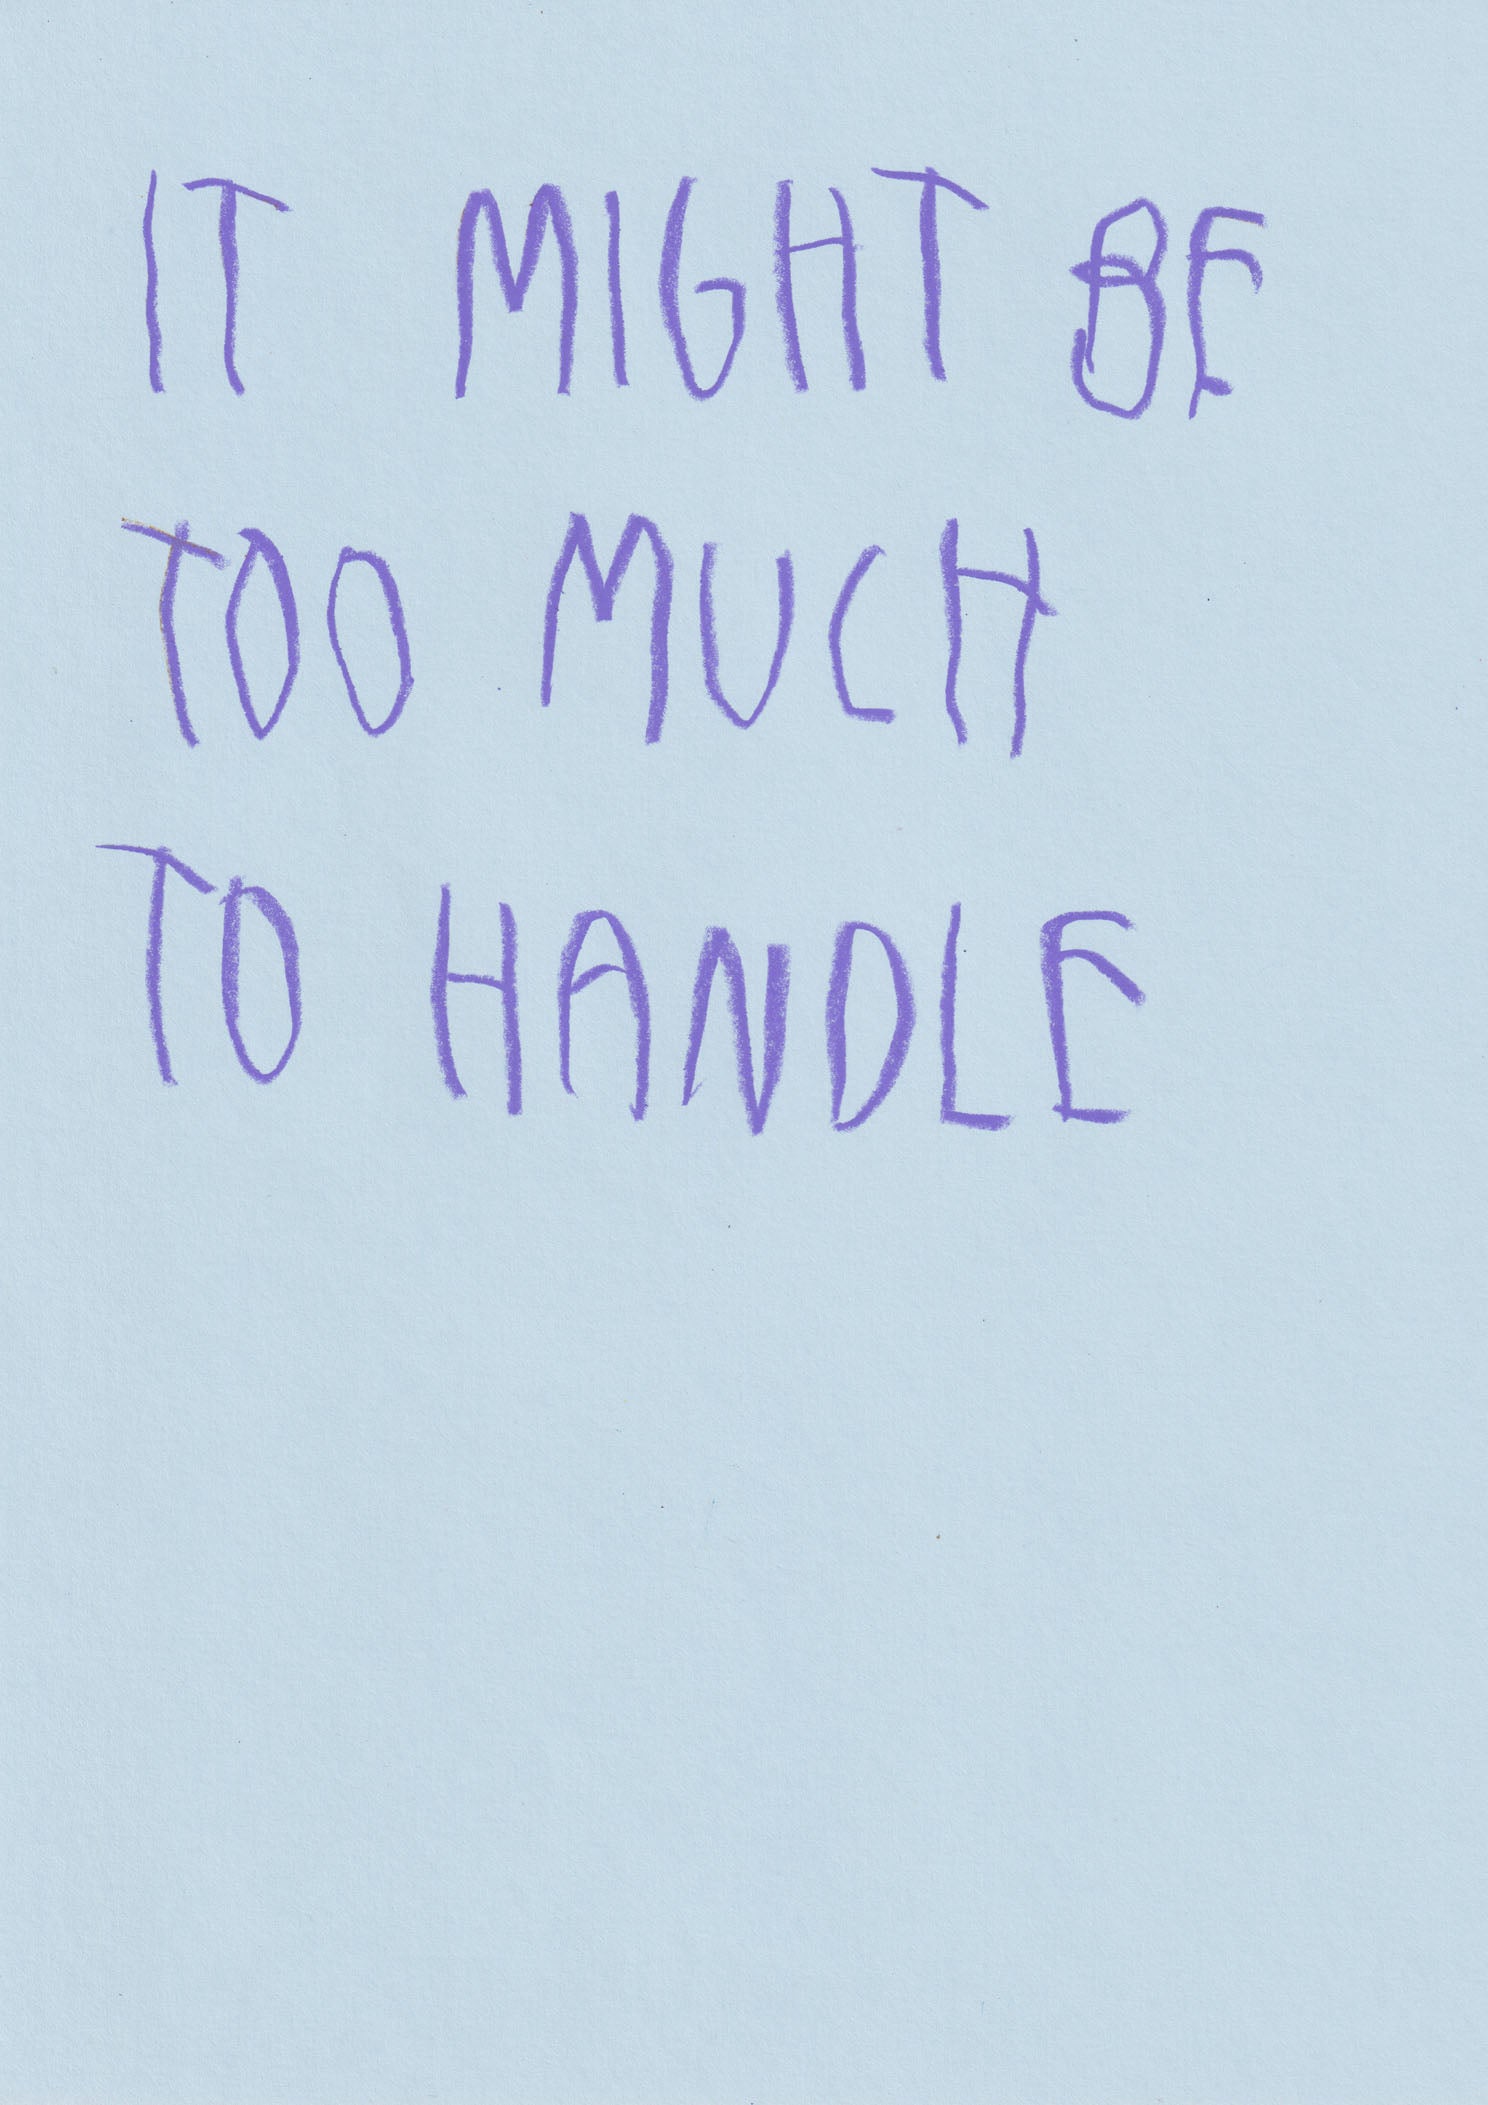 IT MIGHT BE
TOO MUCH
TO HANDLE